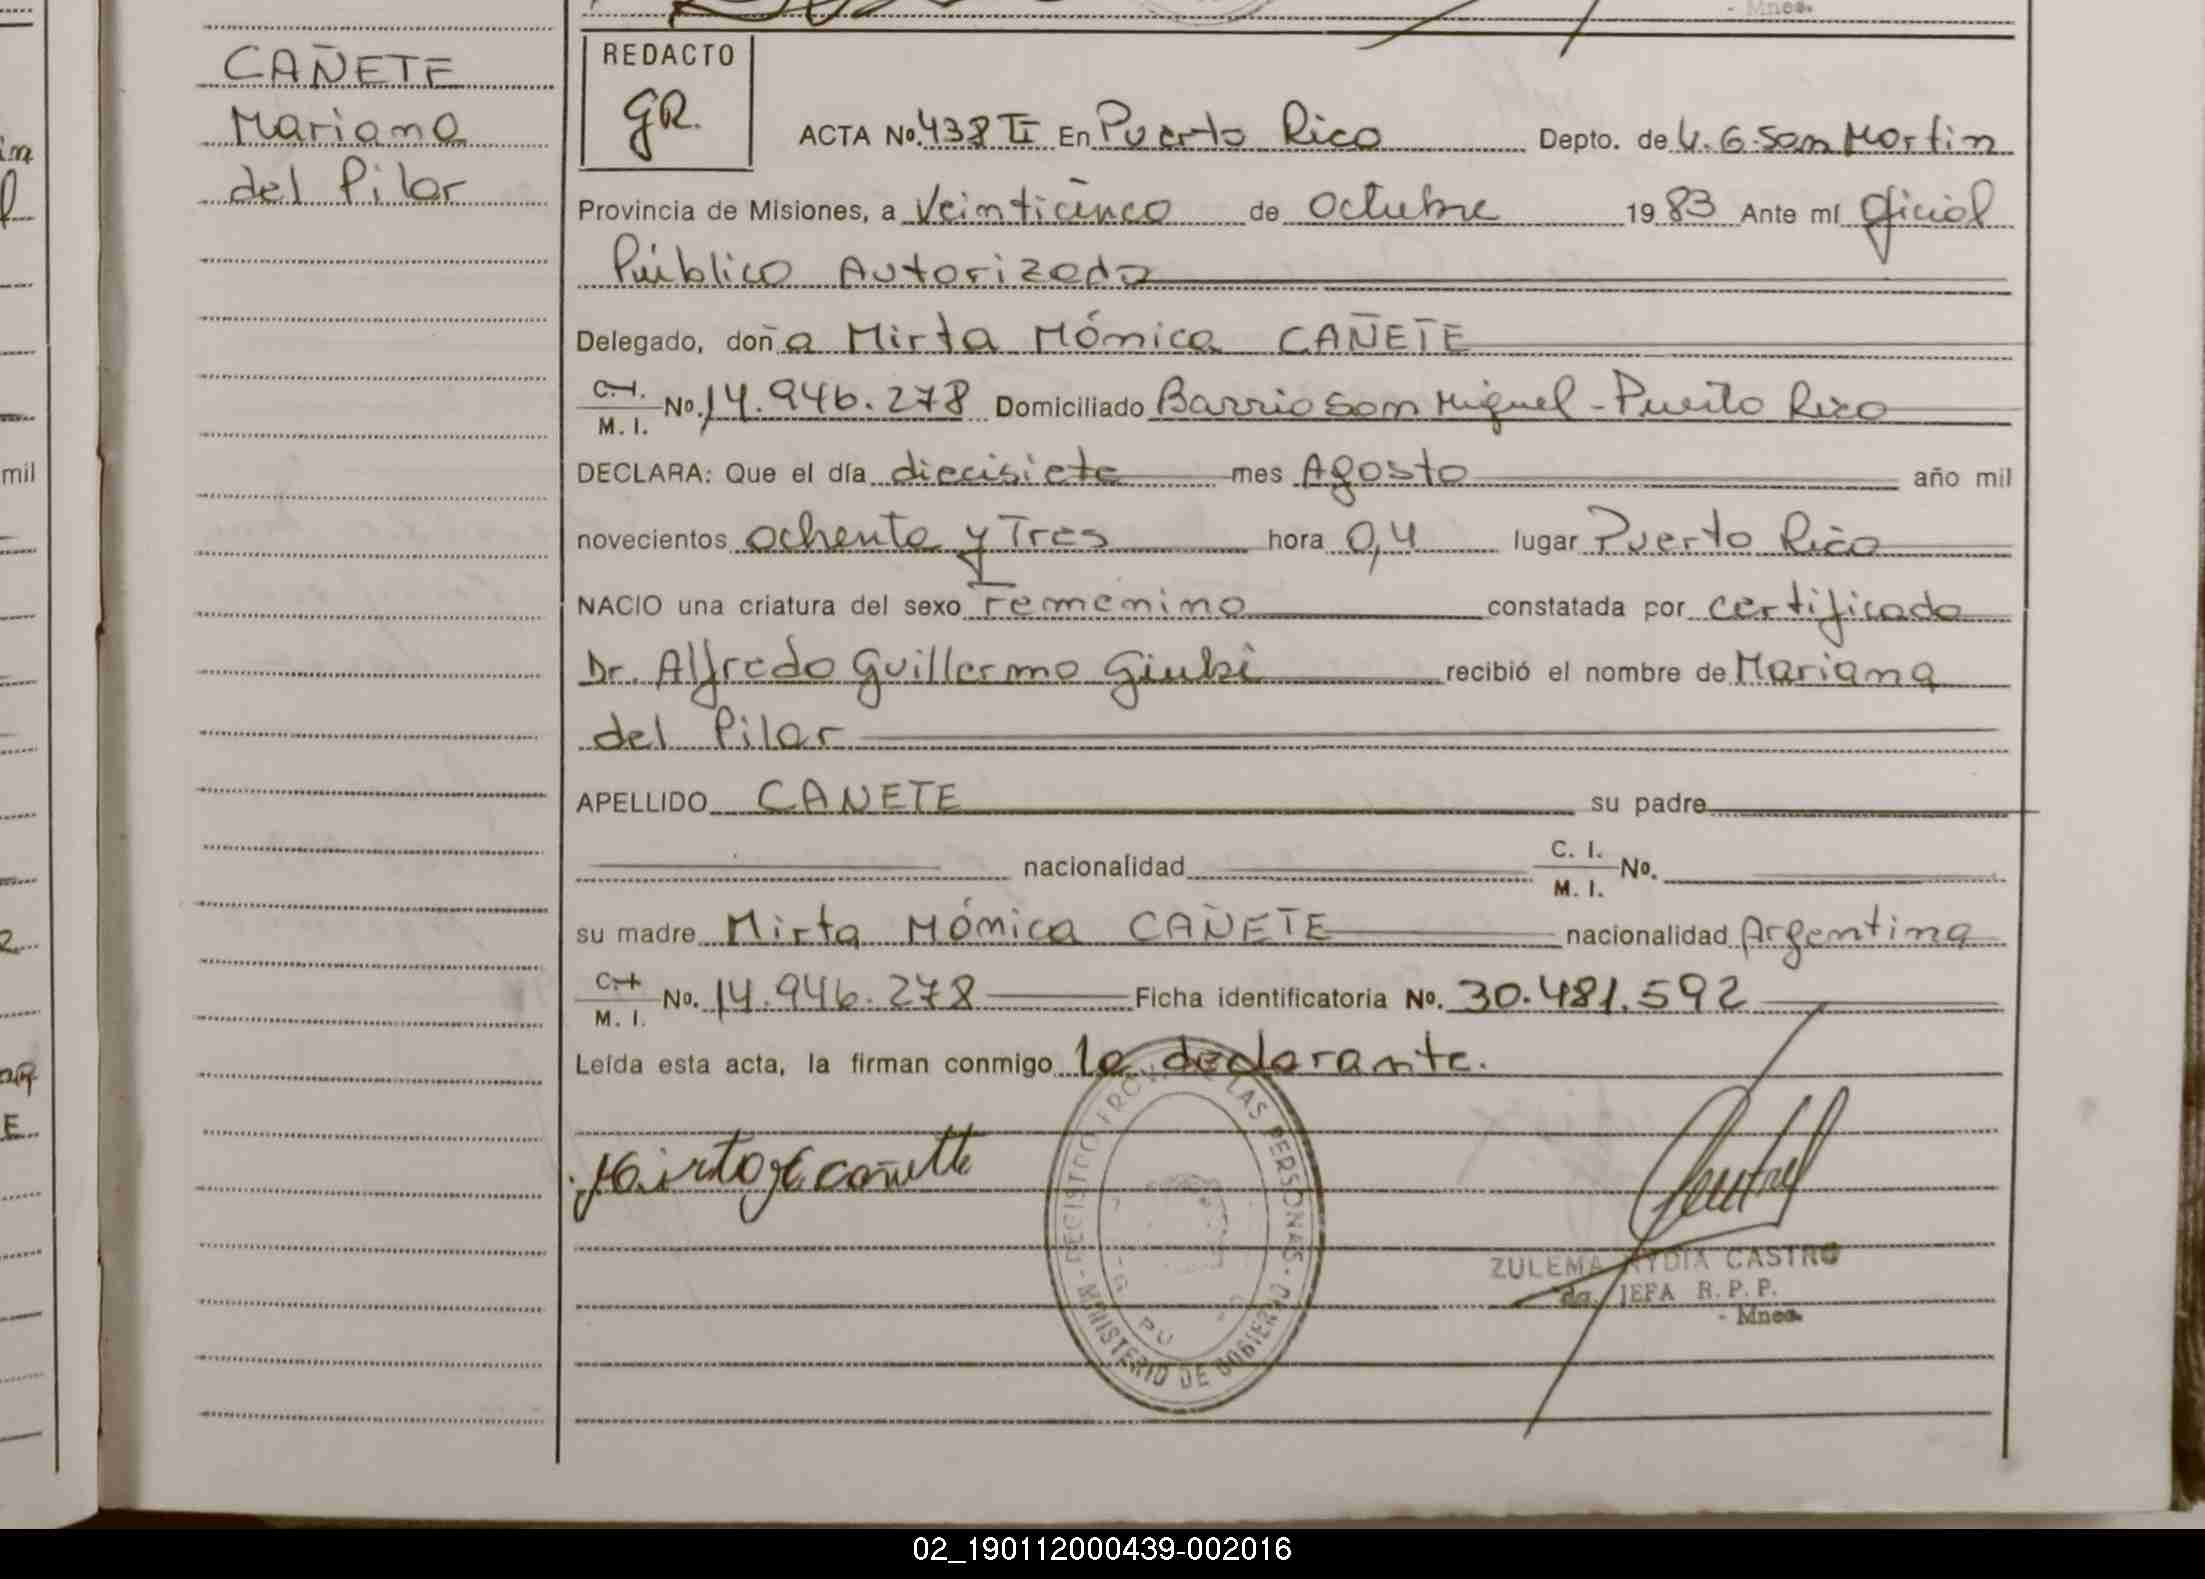 - Mnes.
CAÑETE
Mariana
del Pilar
REDACTO
GR.
ACTA Nº 438 TI En Puerto Rico Depto. de L. G. San Martin
Provincia de Misiones, a Veinticinco de Octubre 1983 Ante mí Oficial
Público Autorizado
Delegado, doña Mirta Mónica CAÑETE
C.I. M. I. No. 14.946.278 Domiciliado Barrio San Miguel - Puerto Rico
DECLARA: Que el día diecisiete mes Agosto año mil
novecientos ochenta y Tres hora 0,4 lugar Puerto Rico
NACIO una criatura del sexo Femenino constatada por certificado
Dr. Alfredo Guillermo Giubi recibió el nombre de Mariana
del Pilar
APELLIDO CAÑETE su padre
nacionalidad C. I. M. I. No.
su madre Mirta Mónica CAÑETE nacionalidad Argentina
C.I. M. I. No. 14.946.278 Ficha identificatoria No. 30.481.592
Leída esta acta, la firman conmigo la declarante.
Mirta M cañete
LAS PERSONAS - MINISTERIO DE GOBIERNO
ZULEMA NYDIA CASTRO
JEFA R. P. P.
- Mnes.
mil
02_190112000439-002016